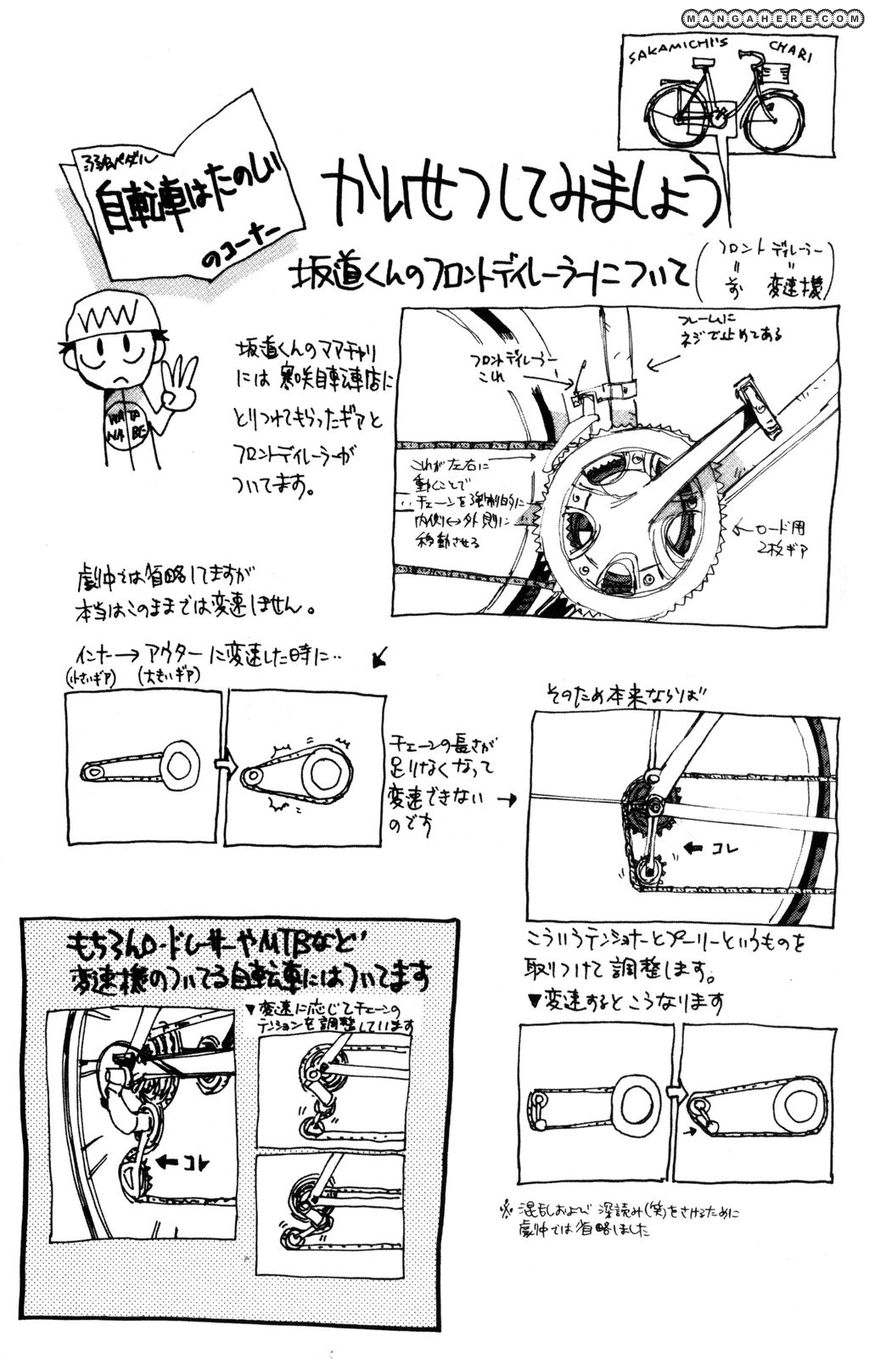 MANGAHERE.COM
SAKAMICHI'S CHARI
弱虫ペダル
自転車はたのしい
のコーナー
かいせつしてみましょう
坂道くんのフロントディレーラーについて
フロント ディレーラー
〃 〃
前 変速機
WATA
NABE
坂道くんのママチャリ
には 寒咲自転車店に
とりつけてもらったギアと
フロントディレーラーが
ついてます。
フロントディレーラー
これ
フレームに
ネジで止めてある
これが左右に
動くことで
チェーンを強制的に
内側↔外側に
移動させる
ロード用
2枚ギア
劇中では省略してますが
本当はこのままでは変速しません。
インナー→アウターに変速した時に‥
(小さいギア) (大きいギア)
チェーンの長さが
足りなくなって
変速できない
のです
そのため本来ならば
コレ
こういうテンショナーとプーリーというものを
取りつけて調整します。
▼変速するとこうなります
※ 混乱および深読み(笑)をさけるために
劇中では省略しました
もちろんロードレーサーやMTBなど
変速機のついてる自転車にはついてます
▼変速に応じてチェーンの
テンションを調整しています
コレ